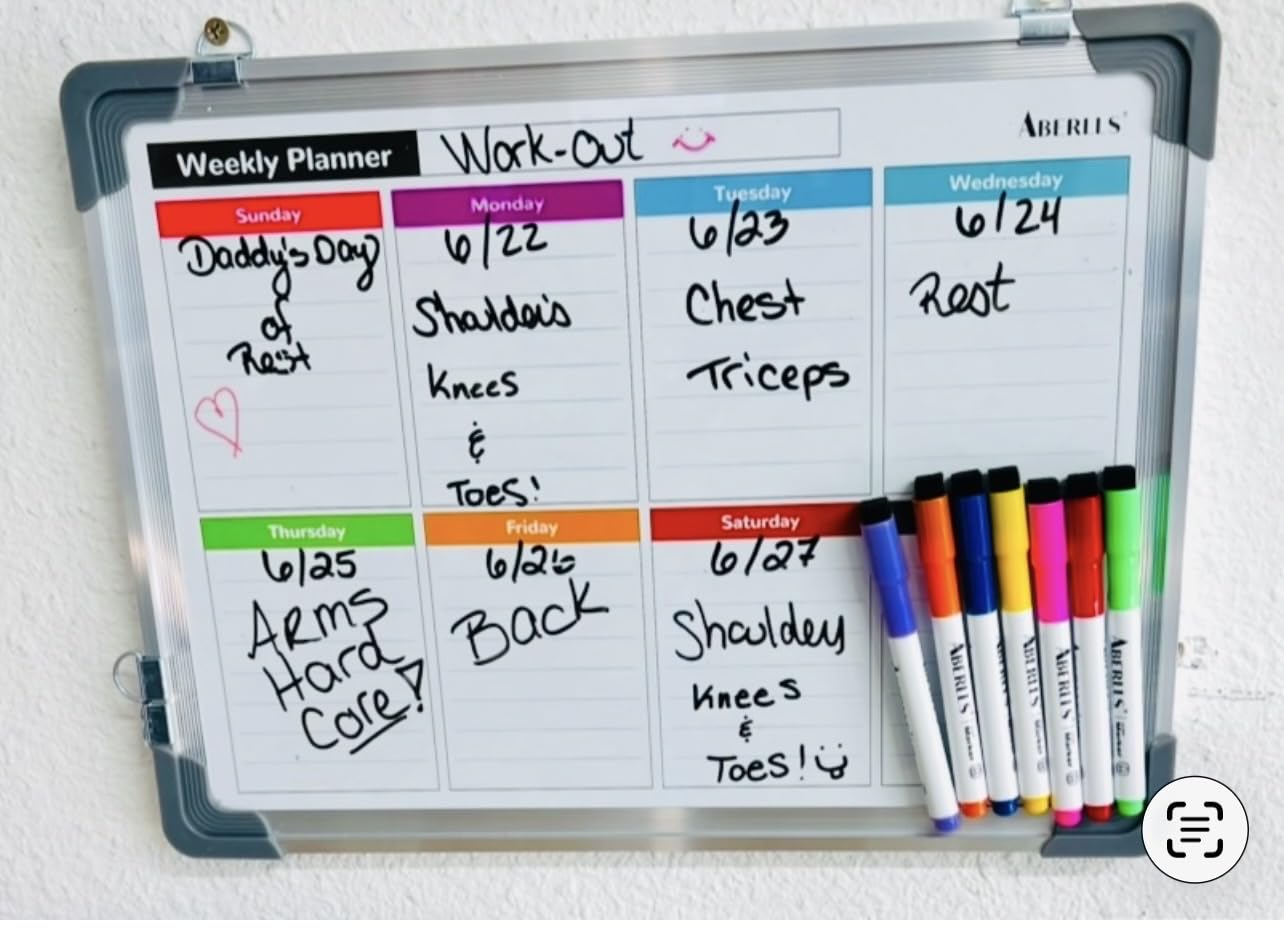 Weekly Planner Work-Out
ABERLLS
Sunday
Daddy's Day
of
Rest
Monday
6/22
Shoulders
Knees
&
Toes!
Tuesday
6/23
Chest
Triceps
Wednesday
6/24
Rest
Thursday
6/25
Arms
Hard
Core!
Friday
6/26
Back
Saturday
6/27
Shoulders
Knees
&
Toes!
ABERLLS Marker
ABERLLS Marker
ABERLLS Marker
ABERLLS Marker